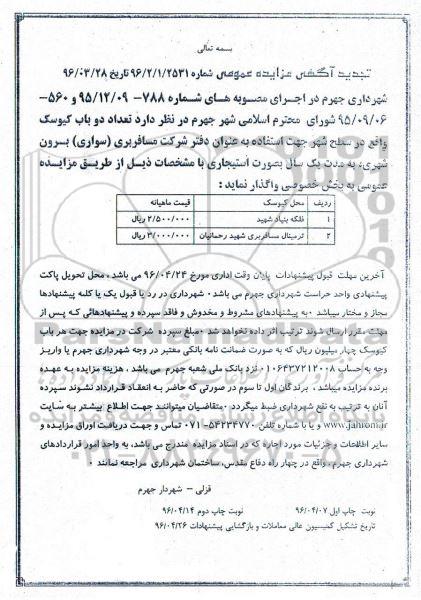 بسمه تعالی
تجدید آگهی مزایده عمومی شماره ۹۶/۲/۱/۲۵۳۱ تاریخ ۹۶/۰۳/۲۸
شهرداری جهرم در اجرای مصوبه های شماره ۷۸۸- ۹۵/۱۲/۰۹ و ۵۶۰-
۹۵/۰۹/۰۶ شورای محترم اسلامی شهر جهرم در نظر دارد تعداد دو باب کیوسک
واقع در سطح شهر جهت استفاده به عنوان دفتر شرکت مسافربری (سواری) برون
شهری، به مدت یک سال بصورت استیجاری با مشخصات ذیل از طریق مزایده
عمومی به بخش خصوصی واگذار نماید :
ردیف محل کیوسک قیمت ماهیانه
۱ فلکه بنیاد شهید ۲/۵۰۰/۰۰۰ ریال
۲ ترمینال مسافربری شهید رحمانیان ۳/۰۰۰/۰۰۰ ریال
آخرین مهلت قبول پیشنهادات پایان وقت اداری مورخ ۹۶/۰۴/۲۴ می باشد ۰ محل تحویل پاکت
پیشنهادی واحد حراست شهرداری جهرم می باشد ۰ شهرداری در رد یا قبول یک یا کلیه پیشنهادها
مجاز و مختار میباشد ۰ به پیشنهادهای مشروط و مخدوش و فاقد سپرده و پیشنهادهائی که پس از
مهلت مقرر ارسال شوند ترتیب اثر داده نخواهد شد ۰ مبلغ سپرده شرکت در مزایده جهت هر باب
کیوسک چهار میلیون ریال که به صورت ضمانت نامه بانکی معتبر در وجه شهرداری جهرم یا واریز
وجه به حساب ۰۱۰۶۴۳۷۲۱۲۰۰۸ نزد بانک ملی شعبه جهرم می باشد . هزینه مزایده به عهده
برنده مزایده میباشد ، برندگان اول تا سوم در صورتی که حاضر به انعقاد قرارداد نشوند سپرده
آنان به ترتیب به نفع شهرداری ضبط میگردد ۰متقاضیان میتوانند جهت اطلاع بیشتر به سایت
www.jahrom.ir و یا با شماره تلفن ۵۴۲۳۴۷۷۰-۰۷۱ تماس و جهت دریافت اوراق مزایده و
سایر اطلاعات و جزئیات مورد اجاره که در اسناد مزایده مندرج می باشد، به واحد امور قراردادهای
شهرداری جهرم، واقع در چهار راه دفاع مقدس، ساختمان شهرداری مراجعه نمایند ۰
قزلی – شهردار جهرم
نوبت چاپ اول ۹۶/۰۴/۰۷ نوبت چاپ دوم ۹۶/۰۴/۱۴
تاریخ تشکیل کمیسیون عالی معاملات و بازگشایی پیشنهادات ۹۶/۰۴/۲۶